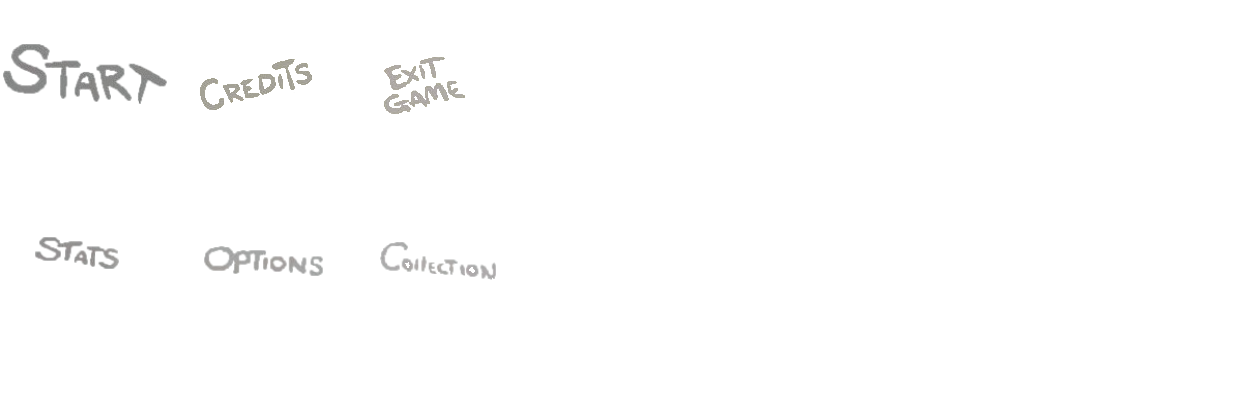 START
CREDITS
EXIT
GAME
STATS
OPTIONS
COllECTION